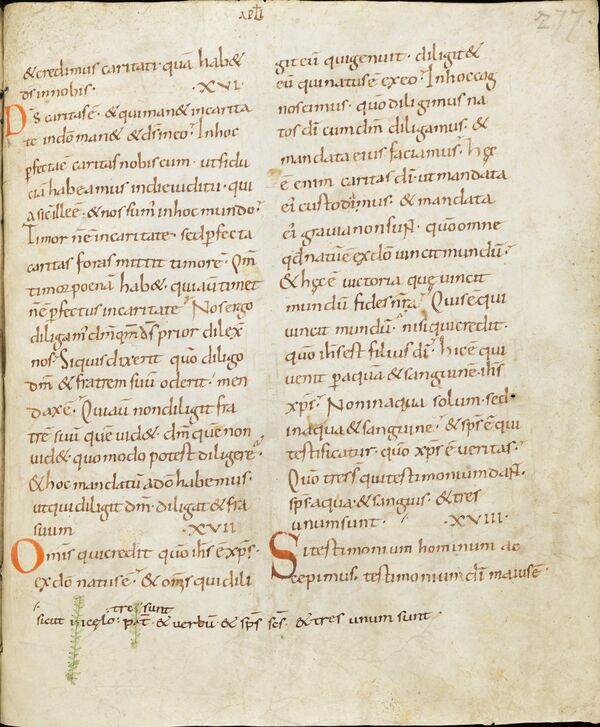 APŁI
277
& credimus caritati· quā hab&
dš innobis· ·XVI·
Dš caritasē· & quiman& incarita
te indō man& & dš ineo· Inhoc
pfectaē caritas nobiscum· utfidu
ciā habeamus indieiudicii· qui
a sic̄ illeē· & nos sum' inhoc mundo·
Timor nēincaritate· sed pfecta
caritas foras mittit timorē· Qm̄
timor poenā hab&· qui aū timet
nē pfectus incaritate· Nos ergo
diligam' dm̄ qm̄ dš prior dilex̄
nos· Siquis dixerit quō diligo
dm̄ & fratrem suū oderit· men
daxē· Qui aū non diligit fra
trē suū quē uid&· dm̄ quē non
uid& quomodo potest diligere·
& hoc mandatū adō habemus·
utqui diligit dm̄· diligat & fra
suum ·XVII·
Omis qui credit quō ihs ē xps·
exdō natusē· & om̄s qui dili
git eū qui genuit· diligit &
eū qui natusē exeo· Inhoc cog
noscimus· quō diligimus na
tos dī cum dm̄ diligamus· &
mandata eius faciamus· Hęc
ē enim caritas dī· ut mandata
ei' custodimus· & mandata
ei' grauia non suÑ· quō omne
qd natūē exdō uincit mundū·
& hęc ē uictoria quę uincit
mundū fides nr̄a· Quis e qui
uincit mundū· nisi qui credit·
quō ihs est filius dī· hic ē qui
uenit p aquā & sanguinē· ihs
xps· Non in aqua solum· sed
in aqua & sanguine· & sps ē qui
testificatur· quō xps ē ueritas·
Quō tres s̄ qui testimonium daÑ·
sps· aqua· & sanguis· & tres
unum sunt· ·XVIII·
Si testimonium hominum ac
cepimus· testimonium dī maius ē
tres sunt
sicut in cęlo· pat̄· & uerbū· & sps· scs· & tres unum sunt